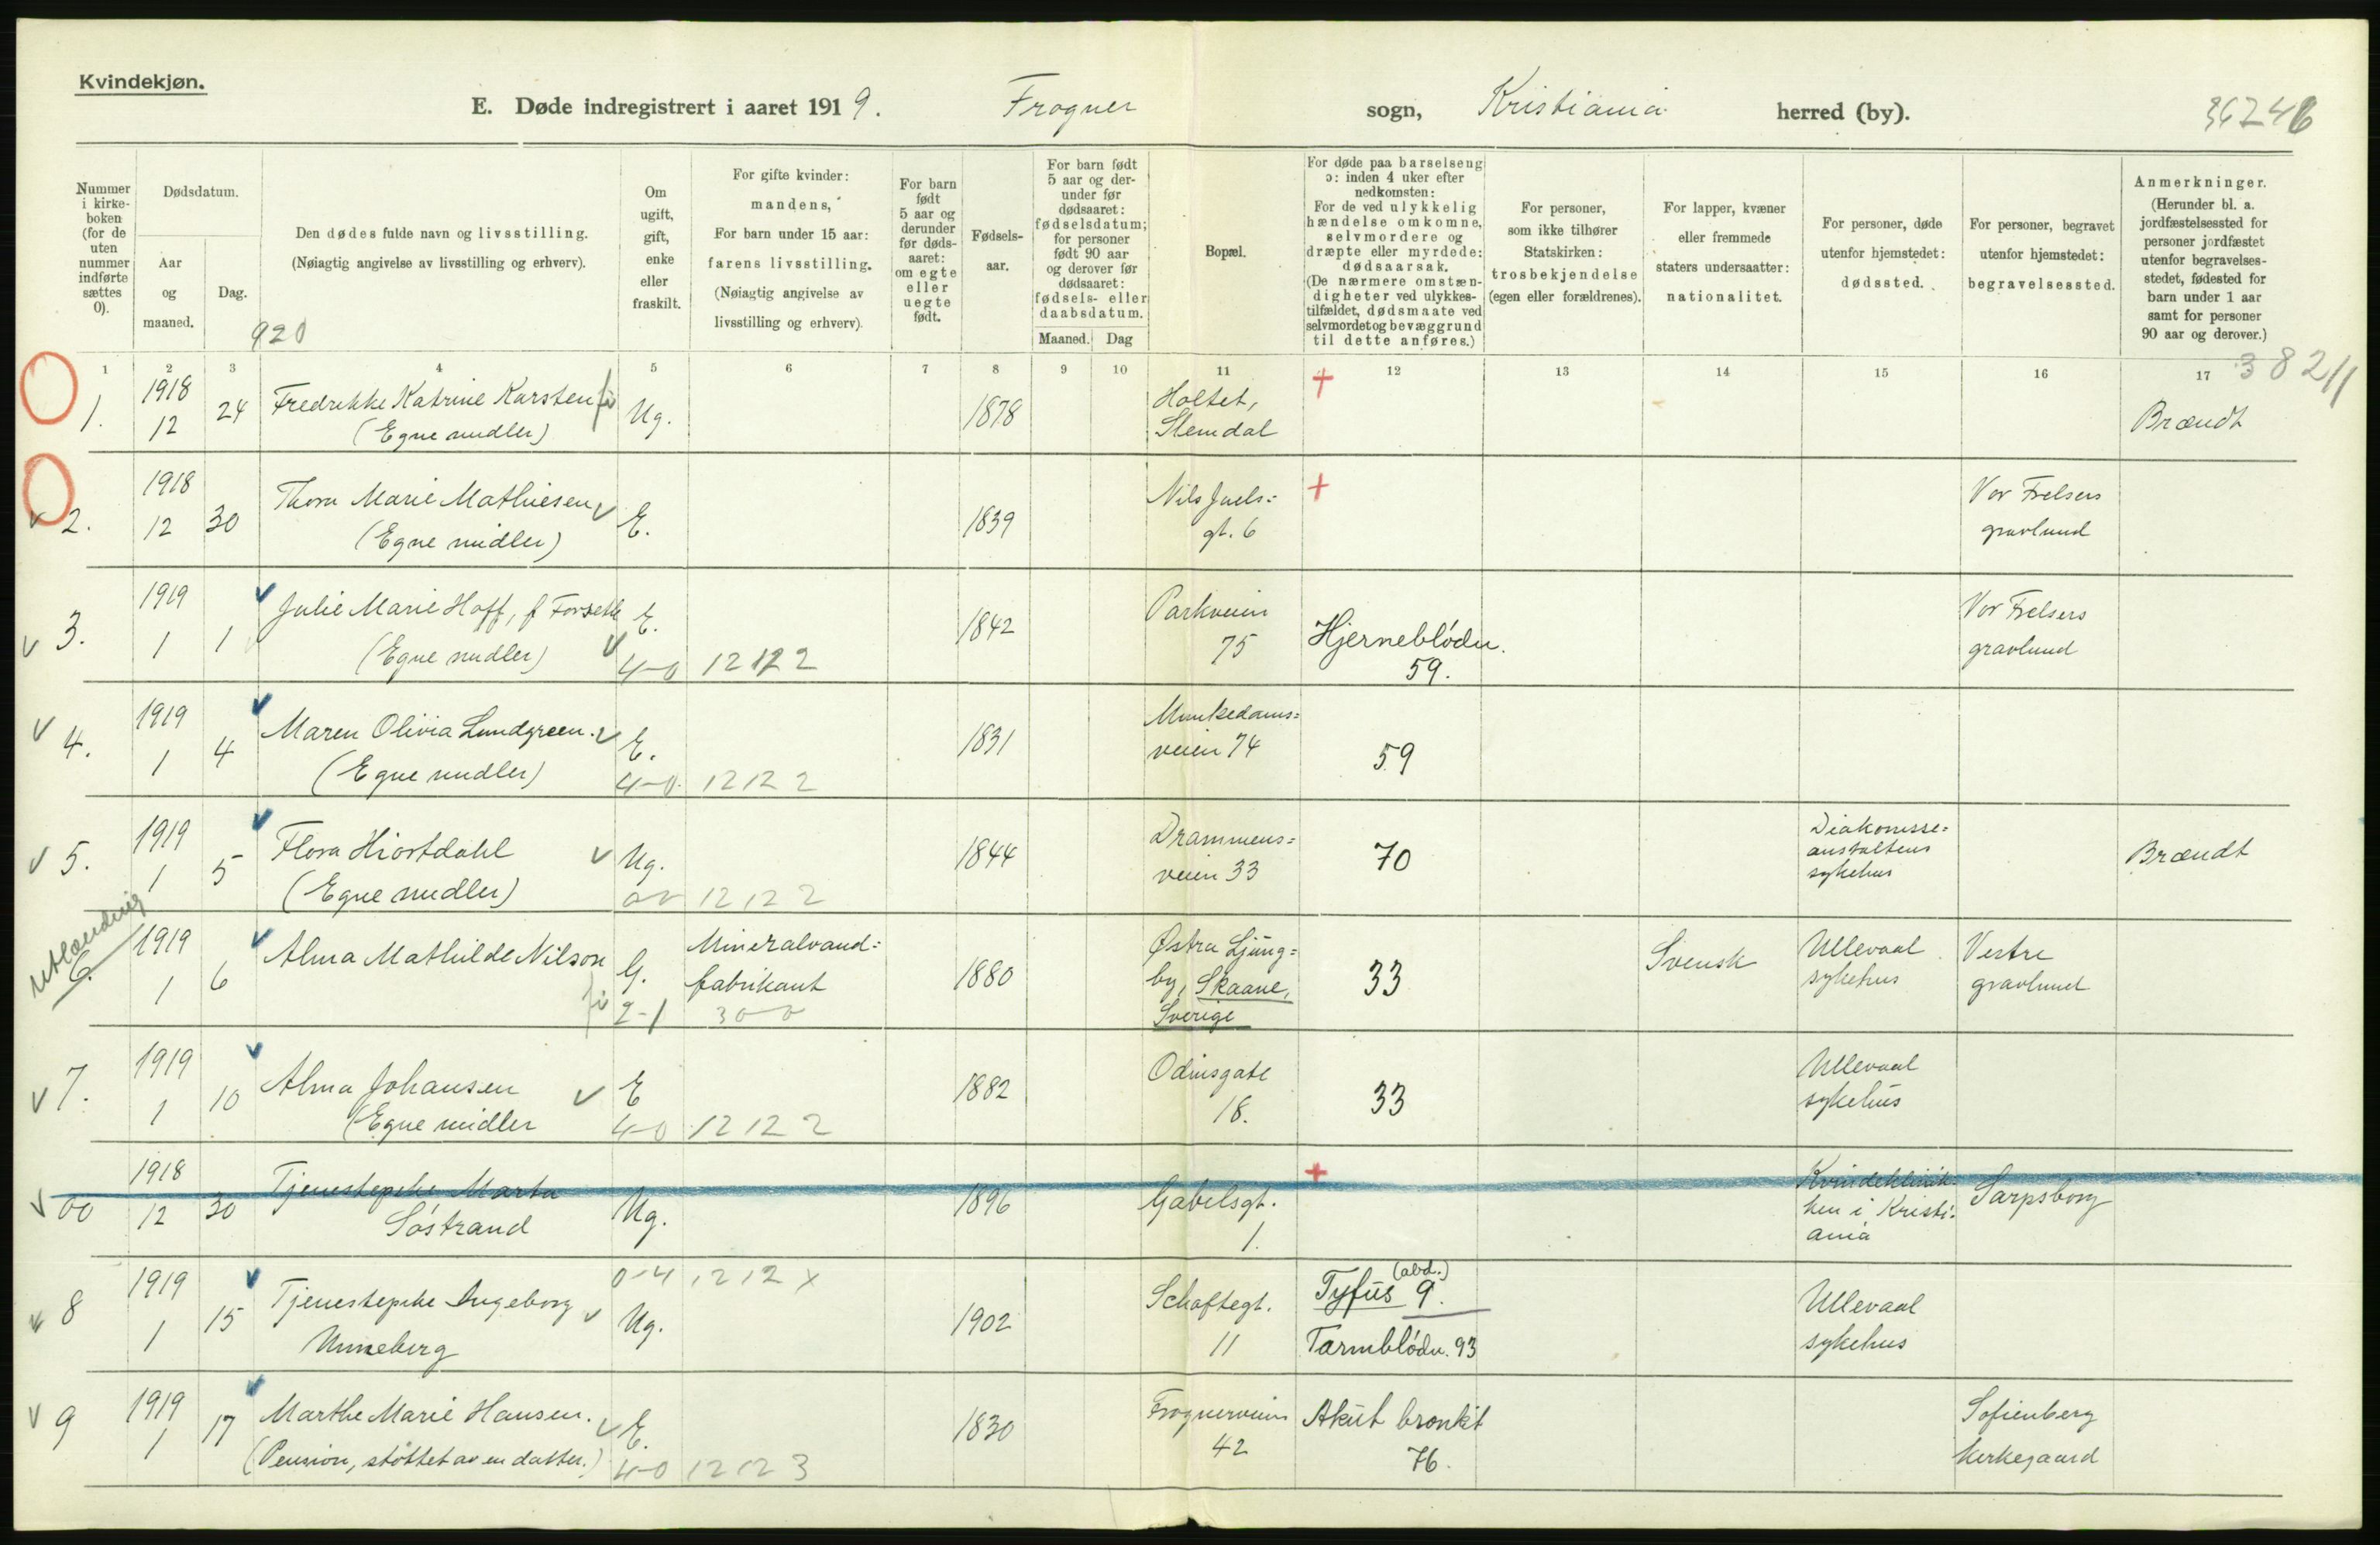 Kvindekjøn.
E. Døde indregistrert i aaret 1919. Frogner sogn, Kristiania herred (by). 36246
Nummer i kirkeboken (for de uten nummer indførte sættes 0).
Dødsdatum.
Aar og maaned.
Dag.
Den dødes fulde navn og livsstilling.
(Nøiagtig angivelse av livsstilling og erhverv).
920
Om ugift, gift, enke eller fraskilt.
For gifte kvinder: mandens,
For barn under 15 aar: farens livsstilling.
(Nøiagtig angivelse av livsstilling og erhverv).
For barn født 5 aar og derunder før dødsaaret: om egte eller uegte født.
Fødselsaar.
For barn født 5 aar og derunder før dødsaaret: fødselsdatum; for personer født 90 aar og derover før dødsaaret: fødsels- eller daabsdatum.
Maaned. Dag
Bopæl.
For døde paa barselseng ɔ: inden 4 uker efter nedkomsten:
For de ved ulykkelig hændelse omkomne, selvmordere og dræpte eller myrdede: dødsaarsak.
(De nærmere omstændigheter ved ulykkestilfældet, dødsmaate ved selvmordet og bevæggrund til dette anføres.)
For personer, som ikke tilhører Statskirken: trosbekjendelse (egen eller forældrenes).
For lapper, kvæner eller fremmede staters undersaatter: nationalitet.
For personer, døde utenfor hjemstedet: dødssted.
For personer, begravet utenfor hjemstedet: begravelsessted.
Anmerkninger.
(Herunder bl. a. jordfæstelsessted for personer jordfæstet utenfor begravelsesstedet, fødested for barn under 1 aar samt for personer 90 aar og derover.)
1 2 3 4 5 6 7 8 9 10 11 12 13 14 15 16 17
1. 1918 12 24 Fredrikke Katrine Karsten (Egne midler) Ug. 1878 Holtet, Slemdal + Brændt
2. 1918 12 30 Thora Marie Mathiesen (Egne midler) E. 1839 Nils Juels= gt. 6 + Vor Frelsers gravlund
3. 1919 1 1 Julie Marie Hoff, f Forseth (Egne midler) E. 4-0 12 12 2 1842 Parkveien 75 Hjerneblødn. 59. Vor Frelsers gravlund
4. 1919 1 4 Maren Olivia Lundgreen. (Egne midler) E. 4-0 12 12 2 1831 Munkedams= veien 74 59
5. 1919 1 5 Flora Hiortdahl (Egne midler) Ug. 12 12 2 1844 Drammens= veien 33 70 Diakonisse= anstaltens sykehus Brændt
Utlænding
6. 1919 1 6 Alma Mathilde Nilson G. 2-1 Mineralvand= fabrikant 1880 Østra Ljung= by, Skaane, Sverige 33 Svensk Ullevaal sykehus Vestre gravlund
7. 1919 1 10 Alma Johansen (Egne midler E 4-0 12 12 2 1882 Odinsgate 18. 33 Ullevaal sykehus
00 1918 12 30 Tjenestepike Marta Søstrand Ug. 1896 Gabelsgt. 1. + Kvindeklinik= ken i Kristi= ania Sarpsborg
8 1919 1 15 Tjenestepike Ingeborg Unneberg 0-4 12 12 x Ug. 1902 Schaftegt. 11 Tyfus (abd.) 9. Tarmblødn. 93 Ullevaal sykehus
9 1919 1 17 Marthe Marie Hansen. (Pension, støttet av en datter.) E. 4-0 12 12 3 1830 Frognerveien 42 Akut bronkit 76. Sofienberg kirkegaard